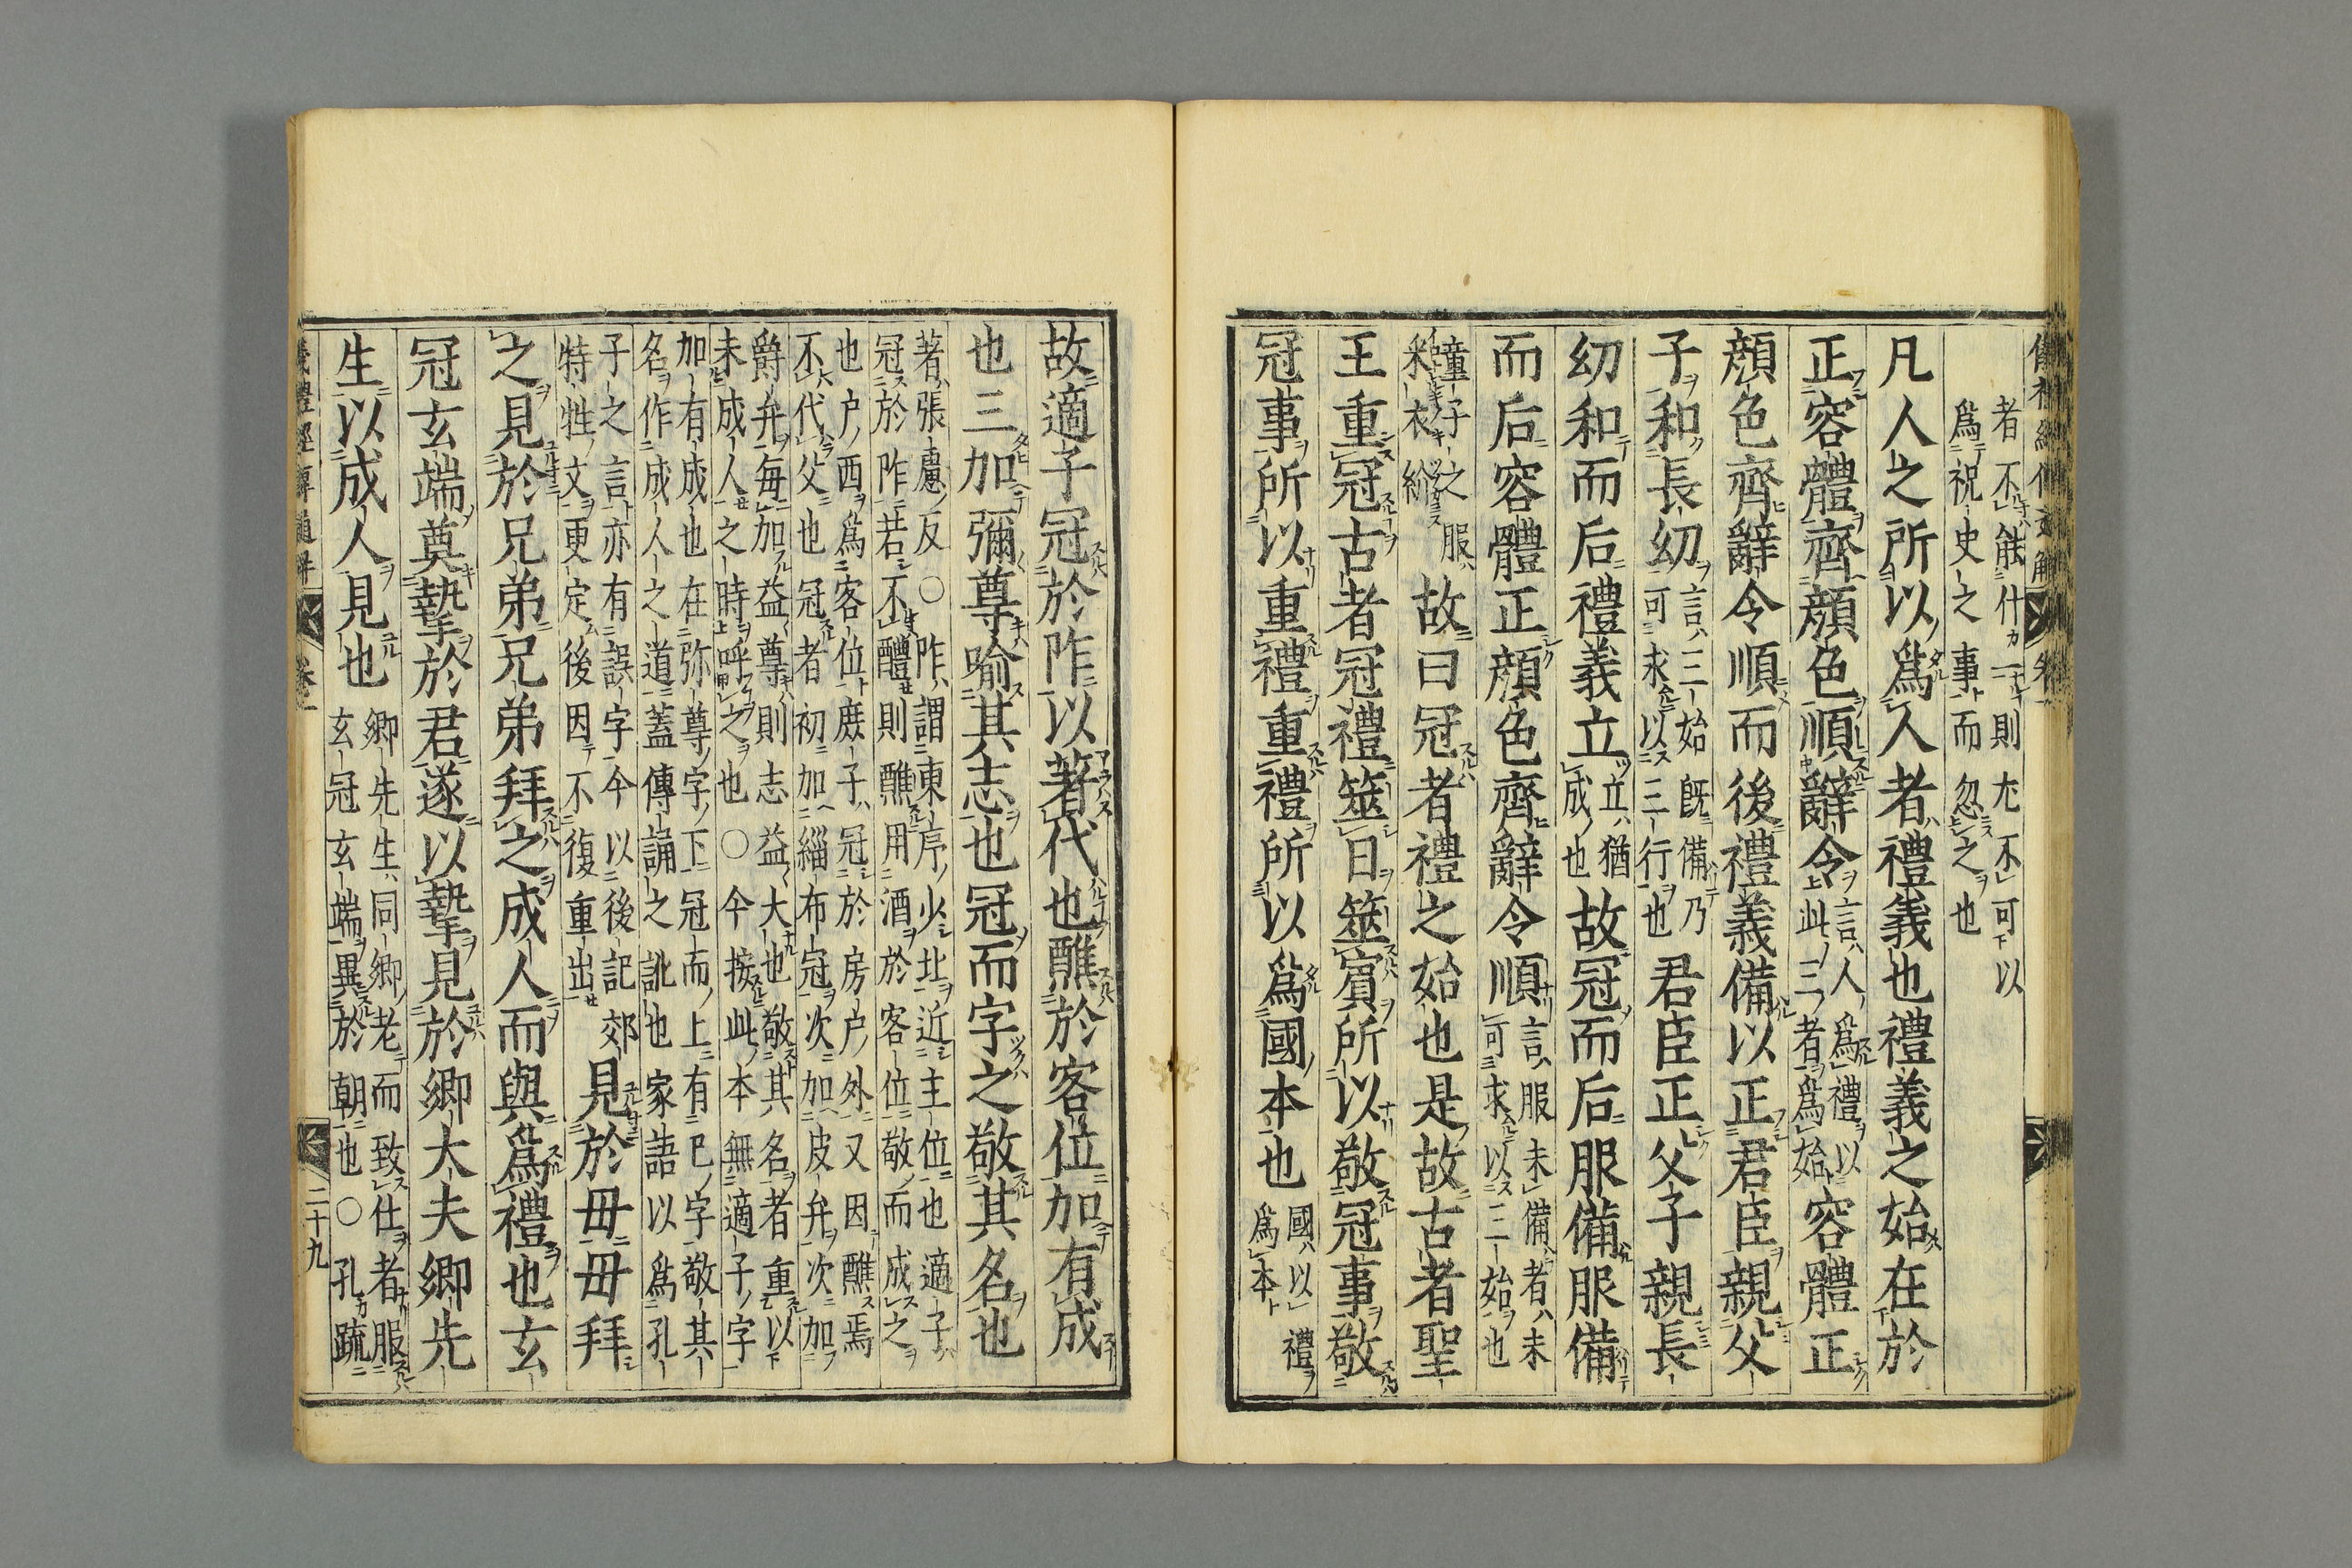 者不能什一則尤不可以
爲祝史之事而忽之也
凡人之所以爲人者禮義也禮義之始在於
正容體齊顔色順辭令言人爲禮以
此三者爲始容體正
顔色齊辭令順而後禮義備以正君臣親父
子和長幼言三始既備乃
可求以三行也君臣正父子親長
幼和而后禮義立立猶
成也故冠而后服備服備
而后容體正顔色齊辭令順言服未備者未
可求以三始也
童子之服
采衣紒故曰冠者禮之始也是故古者聖
王重冠古者冠禮筮日筮賓所以敬冠事敬
冠事所以重禮重禮所以爲國本也國以禮
爲本
故適子冠於阼以著代也醮於客位加有成
也三加彌尊喩其志也冠而字之敬其名也
著張慮反○阼謂東序少北近主位也適子
冠於阼若不醴則醮用酒於客位敬而成之
也户西爲客位庶子冠於房户外又因醮焉
不代父也冠者初加緇布冠次加皮弁次加
爵弁毎加益尊則志益大也敬其名者重以
未成人之時呼之也○今按此本無適子字
加有成也在弥尊字下冠而上有已字敬其
名作成人之道蓋傳誦之訛也家語以爲孔
子之言亦有誤字今以後記郊
特牲文更定後因不復重出見於毋毋拜
之見於兄弟兄弟拜之成人而與爲禮也玄
冠玄端奠摯於君遂以摯見於卿大夫卿先
生以成人見也卿先生同卿老而致仕者服
玄冠玄端異於朝也○孔疏
二十九